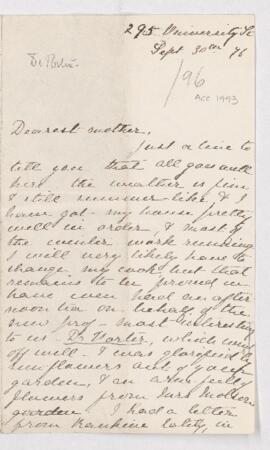 295 University St
Sept 30th 76
Dr Porter
/96
ACC 1993
Dearest mother,
Just a line to
tell you that all goes well
here the weather is fine
& still summer like, & I
have got my house pretty
well in order, & most of
the winter work running
I will very likely have to
change my cook, but that
remains to be proved
have even had an after
noon tea on behalf of the
new prof - most interesting
to us - Dr Porter, which went
off well - I was glorified by
sunflowers out of your
garden, & an arm full of
flowers from Mrs Molson's
garden. I had a letter
from lately, in